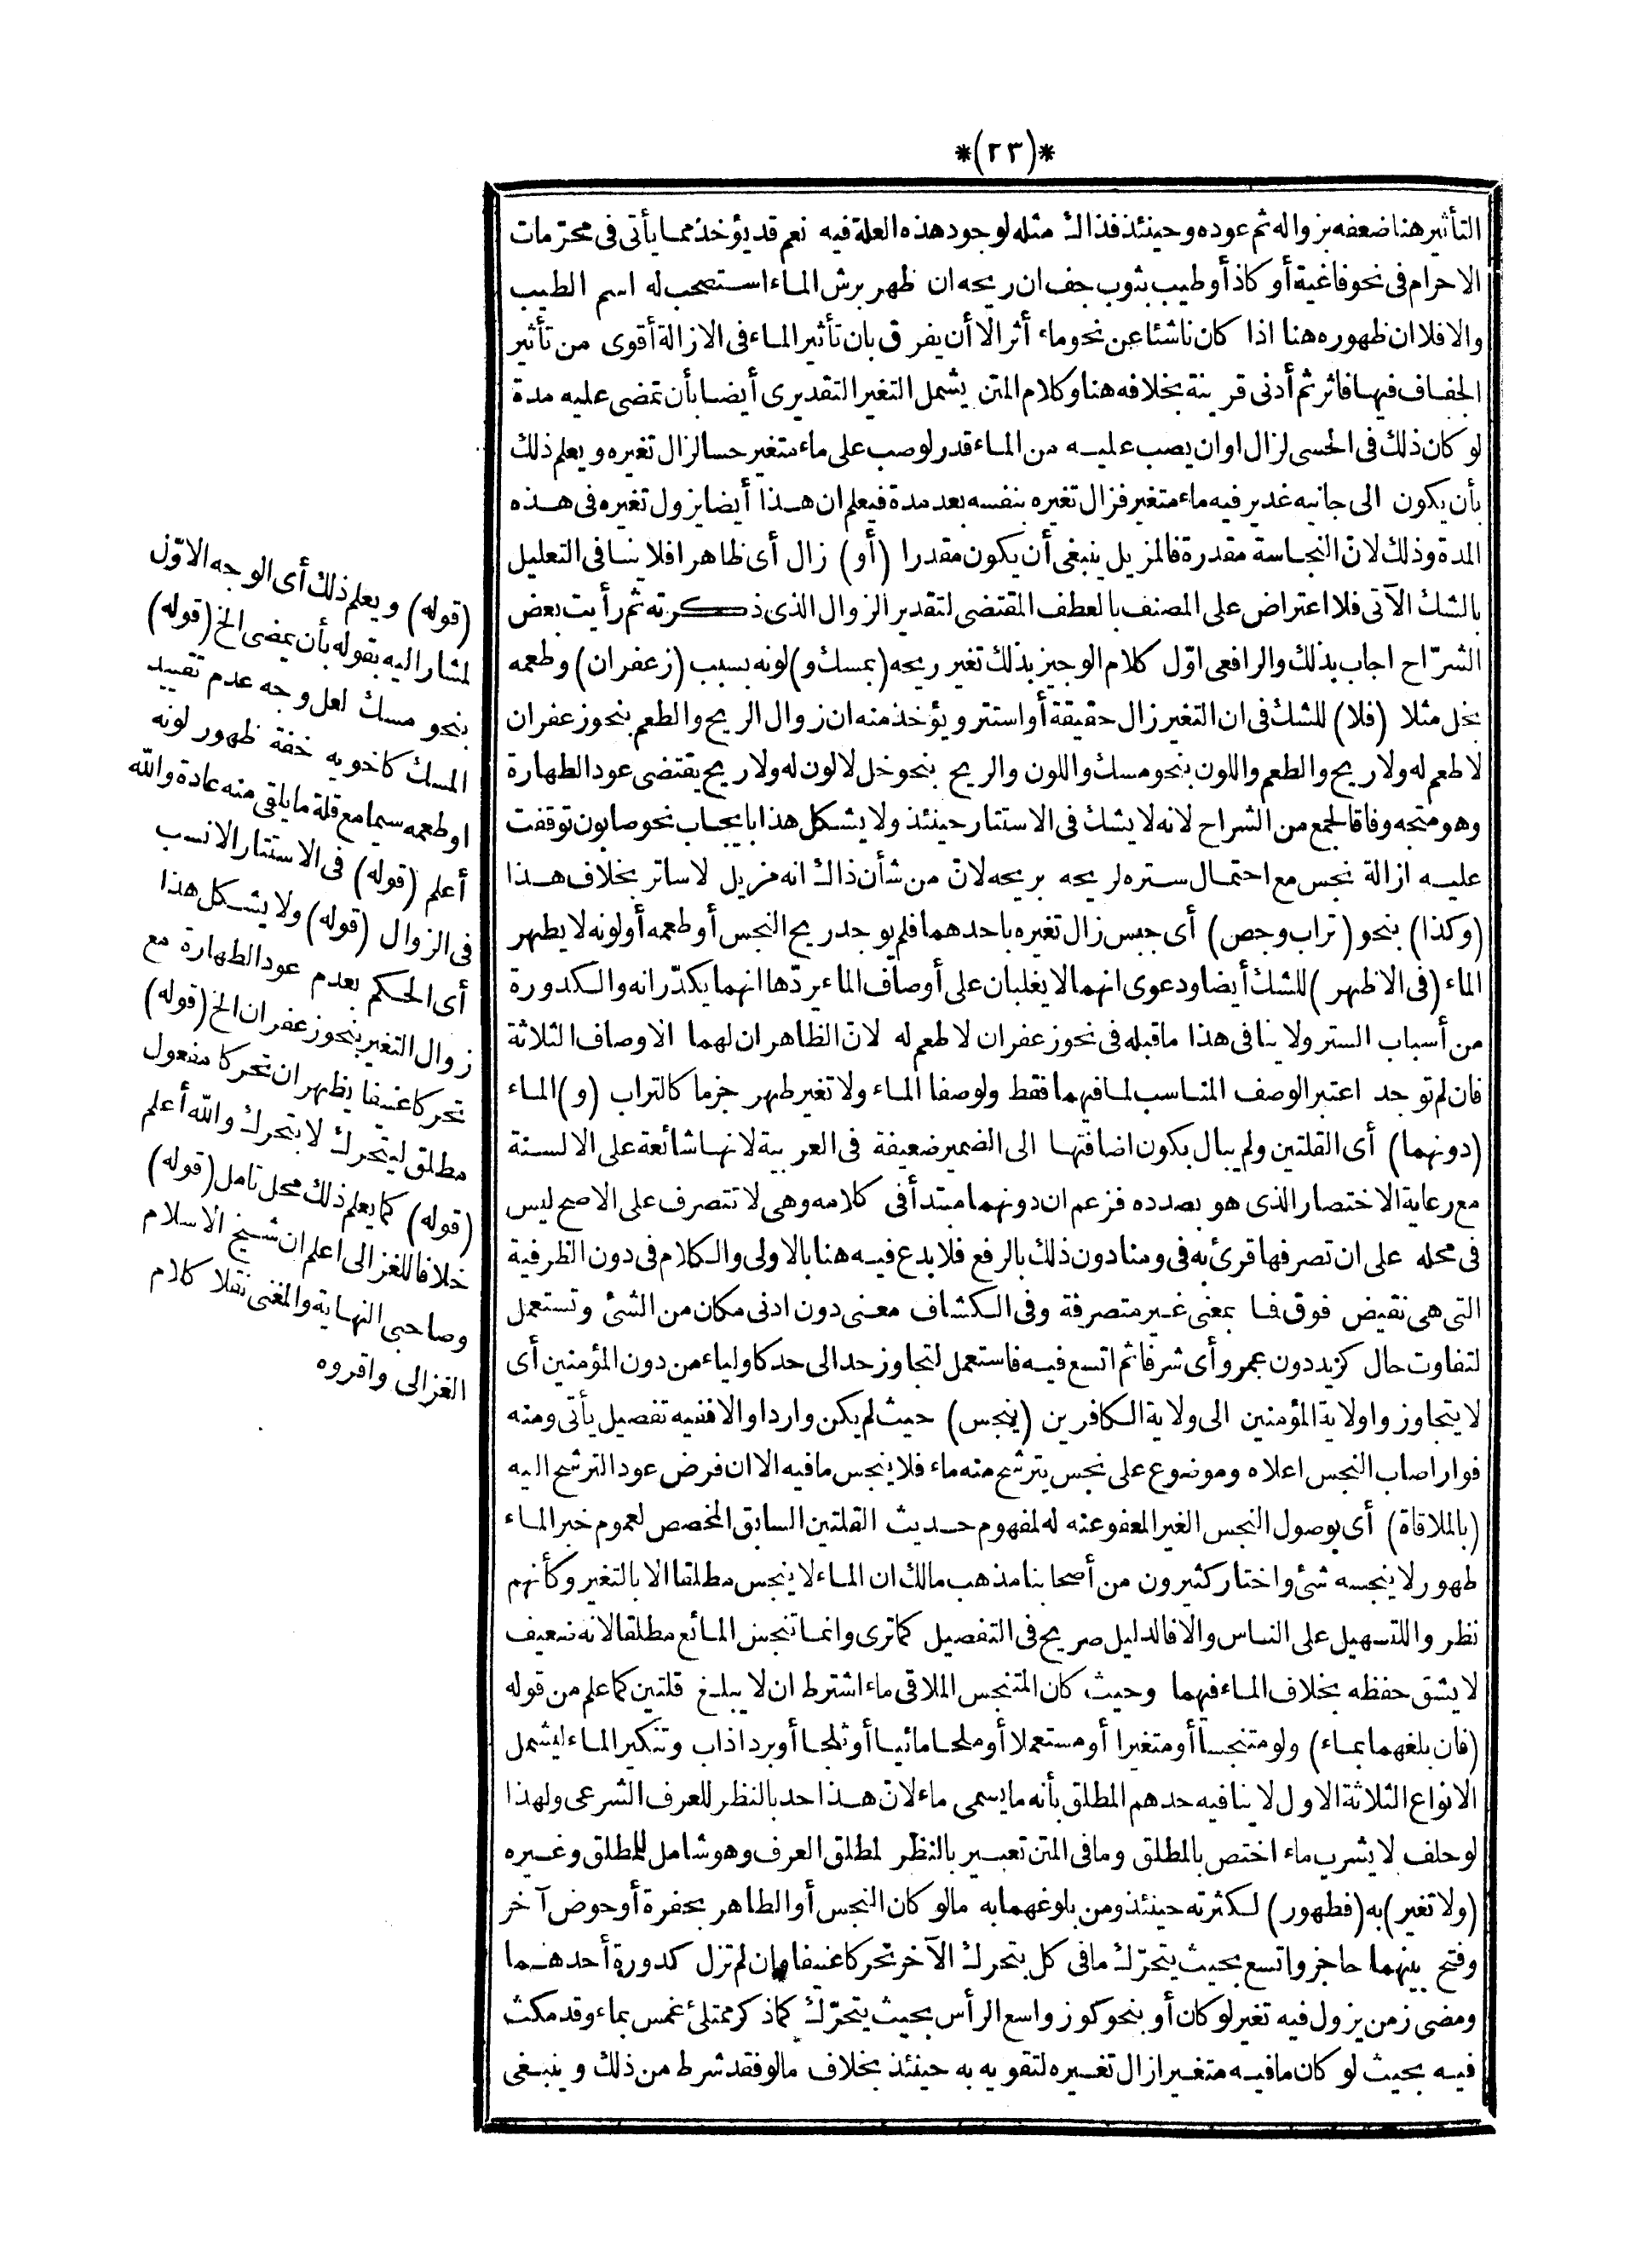 *(٢٣)*
التأثير هنا ضعفه بزواله ثم عوده وحينئذ فذاك مثله لوجود هذه العلة فيه نعم قد يؤخذ مما يأتى فى محرّمات
الاحرام فى نحو فاغية أو كاذ أو طيب بثوب جف ان ريحه ان ظهر برش الماء استصحب له اسم الطيب
والا فلا ان ظهوره هنا اذا كان ناشئا عن نحو ماء أثر الا أن يفرق بان تأثير الماء فى الازالة أقوى من تأثير
الجفاف فيها فاثر ثم أدنى قرينة بخلافه هنا وكلام المتن يشمل التغير التقديرى أيضا بأن تمضى عليه مدة
لو كان ذلك فى الحسى لزال او ان يصب عليه من الماء قدر لو صب على ماء متغير حسا لزال تغيره ويعلم ذلك
بأن يكون الى جانبه غدير فيه ماء متغير فزال تغيره بنفسه بعد مدة فيعلم ان هذا أيضا يزول تغيره فى هذه
المدة وذلك لانّ النجاسة مقدرة فالمزيل ينبغى أن يكون مقدرا (أو) زال أى ظاهرا فلا ينافى التعليل
بالشك الآتى فلا اعتراض على المصنف بالعطف المقتضى لتقدير الزوال الذى ذكرته ثم رأيت بعض
الشرّاح اجاب بذلك والرافعى اوّل كلام الوجيز بذلك تغير ريحه (بمسك و) لونه بسبب (زعفران) وطعمه
بخل مثلا (فلا) للشك فى ان التغير زال حقيقة أو استتر ويؤخذ منه ان زوال الريح والطعم بنحو زعفران
لا طعم له ولا ريح والطعم واللون بنحو مسك واللون والريح بنحو خل لا لون له ولا ريح يقتضى عود الطهارة
وهو متجه وفاقا لجمع من الشراح لانه لا يشك فى الاستتار حينئذ ولا يشكل هذا بايجاب نحو صابون توقفت
عليه ازالة نجس مع احتمال ستره لريحه بريحه لانّ من شأن ذاك انه مزيل لا ساتر بخلاف هذا
(وكذا) بنحو (تراب وجص) أى جبس زال تغيره باحدهما فلم يوجد ريح النجس أو طعمه أو لونه لا يطهر
الماء (فى الاظهر) للشك أيضا ودعوى انهما لا يغلبان على أوصاف الماء يردّها انهما يكدّرانه والكدورة
من أسباب الستر ولا ينافى هذا ما قبله فى نحو زعفران لا طعم له لانّ الظاهر ان لهما الاوصاف الثلاثة
فان لم توجد اعتبر الوصف المناسب لما فيهما فقط ولو صفا الماء ولا تغير طهر جزما كالتراب (و) الماء
(دونهما) أى القلتين ولم يبال بكون اضافتها الى الضمير ضعيفة فى العربية لانها شائعة على الالسنة
مع رعاية الاختصار الذى هو بصدده فزعم ان دونهما مبتدأ فى كلامه وهى لا تتصرف على الاصح ليس
فى محله على ان تصرفها قرئ به فى ومنا دون ذلك بالرفع فلا بدع فيه هنا بالاولى والكلام فى دون الظرفية
التى هى نقيض فوق فما بمعنى غير متصرفة وفى الكشاف معنى دون ادنى مكان من الشئ وتستعمل
لتفاوت حال كزيد دون عمرو أى شرفا ثم اتسع فيه فاستعمل لتجاوز حد الى حد كاولياء من دون المؤمنين أى
لا يتجاوزوا ولاية المؤمنين الى ولاية الكافرين (ينجس) حيث لم يكن واردا والا ففيه تفصيل يأتى ومنه
فوار اصاب النجس اعلاه وموضوع على نجس يترشح منه ماء فلا ينجس ما فيه الا ان فرض عود الترشح اليه
(بالملاقاة) أى بوصول النجس الغير المعفو عنه له لمفهوم حديث القلتين السابق المخصص لعموم خبر الماء
طهور لا ينجسه شئ واختار كثيرون من أصحابنا مذهب مالك ان الماء لا ينجس مطلقا الا بالتغير وكأنهم
نظروا للتسهيل على الناس والا فالدليل صريح فى التفصيل كما ترى وانما تنجس المائع مطلقا لانه ضعيف
لا يشق حفظه بخلاف الماء فيهما وحيث كان المتنجس الملاقى ماء اشترط ان لا يبلغ قلتين كما علم من قوله
(فان بلغهما بماء) ولو متنجسا أو متغيرا أو مستعملا أو ملحا مائيا أو ثلجا أو بردا ذاب وتنكير الماء ليشمل
الانواع الثلاثة الاول لا ينافيه حدهم المطلق بأنه ما يسمى ماء لانّ هذا حد بالنظر للعرف الشرعى ولهذا
لو حلف لا يشرب ماء اختص بالمطلق وما فى المتن تعبير بالنظر لمطلق العرف وهو شامل للمطلق وغيره
(ولا تغير) به (فطهور) لكثرته حينئذ ومن بلوغهما به ما لو كان النجس أو الطاهر بحفرة أو حوض آخر
وفتح بينهما حاجز واتسع بحيث يتحرّك ما فى كل بتحرك الآخر تحركا عنيفا وان لم تزل كدورة أحدهما
ومضى زمن يزول فيه تغير لو كان أو بنحو كوز واسع الرأس بحيث يتحرّك كما ذكر ممتلئ غمس بماء وقد مكث
فيه بحيث لو كان ما فيه متغيرا زال تغيره لتقويه به حينئذ بخلاف ما لو فقد شرط من ذلك وينبغى
(قوله) ويعلم ذلك أى الوجه الاوّل
لمشار اليه بقوله بأن يمضى الخ (قوله)
بنحو مسك لعل وجه عدم تقييد
المسك كاخويه خفة ظهور لونه
او طعمه سيما مع قلة ما يلقى منه عادة والله
أعلم (قوله) فى الاستتار الانسب
فى الزوال (قوله) ولا يشكل هذا
أى الحكم بعدم عود الطهارة مع
زوال التغير بنحو زعفران الخ (قوله)
تحركا عنيفا يظهر ان تحركا مفعول
مطلق ليتحرك لا بتحرك والله أعلم
(قوله) كما يعلم ذلك محل تامل (قوله)
خلافا للغزالى اعلم ان شيخ الاسلام
وصاحبى النهاية والمغنى نقلا كلام
الغزالى واقروه